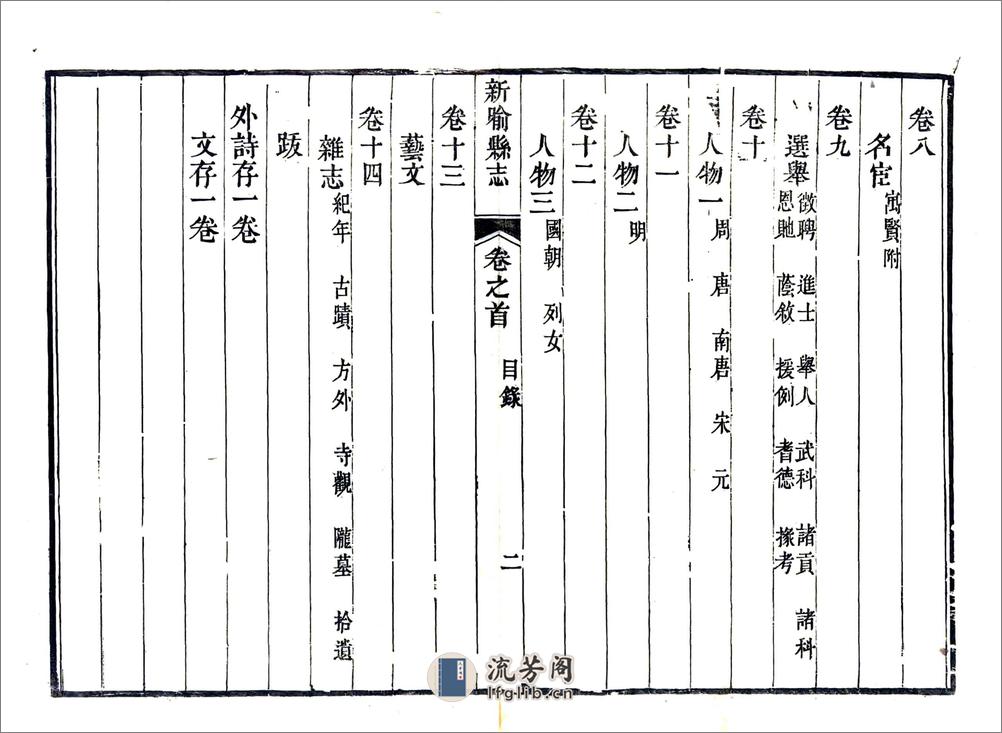 卷八
名宦 寓賢附
卷九
選舉 徵聘 進士 舉人 武科 諸貢 諸科
恩貤 蔭敘 援例 耆德 掾考
卷十
人物一 周 唐 南唐 宋 元
卷十一
人物二 明
卷十二
人物三 國朝 列女
新喻縣志 卷之首 目錄 二
卷十三
藝文
卷十四
雜志 紀年 古蹟 方外 寺觀 隴墓 拾遺
跋
外詩存一卷
文存一卷
流芳阁
lfglib.cn